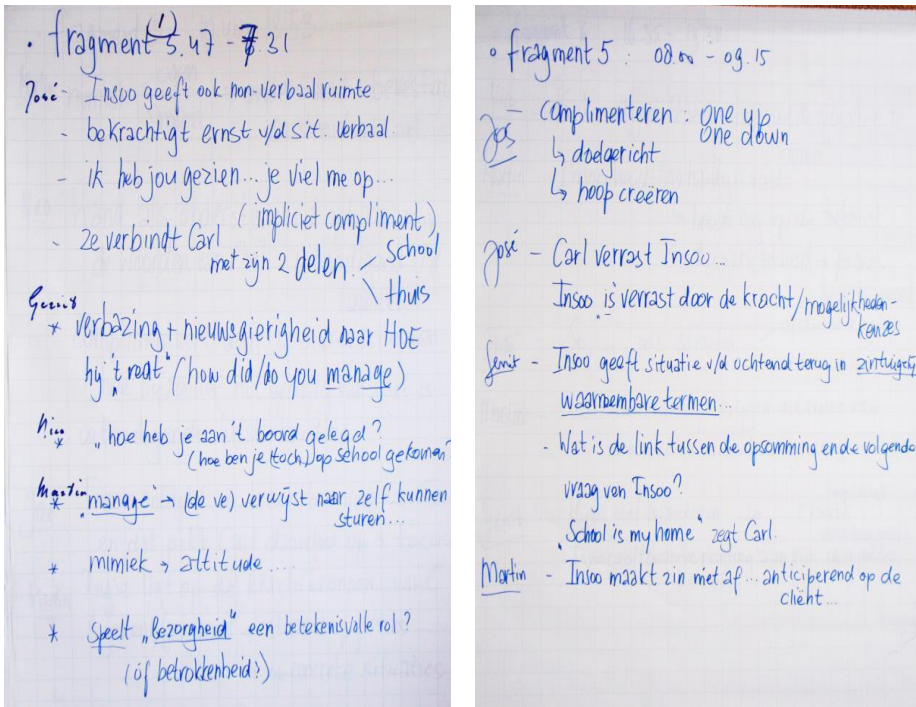 • fragment 5.47 - 7.31
(1)
José - Insoo geeft ook non-verbaal ruimte
- bekrachtigt ernst v/d sit. verbaal.
- ik heb jou gezien... je viel me op...
(impliciet compliment)
- ze verbindt Carl
met zijn 2 delen.
school
thuis
Gerrit
* verbazing + nieuwsgierigheid naar HOE
hij 't redt" (how did/do you manage)
* „hoe heb je aan 't boord gelegd?
(hoe ben je (toch) op school gekomen?
Martin
* „manage" → (de ve) verwijst naar zelf kunnen
sturen...
* mimiek → attitude ....
* speelt „Bezorgheid" een betekenisvolle rol?
(óf betrokkenheid?)
• fragment 5 : 08.00 - 09.15
- complimenteren : one up
one down
Jos
↳ doelgericht
↳ hoop creëren
José - Carl verrast Insoo...
Insoo is verrast door de kracht/mogelijkheden-
keuzes
Gerrit - Insoo geeft situatie v/d ochtend terug in zintuigely
waarneembare termen...
- Wat is de link tussen de opsomming en de volgende
vraag van Insoo?
„School is my home" zegt Carl.
Martin - Insoo maakt zin niet af... anticiperend op de
cliënt...